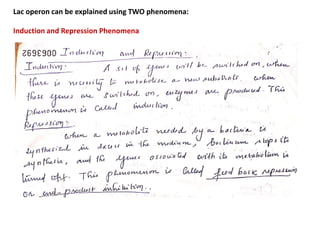 Lac operon can be explained using TWO phenomena:
Induction and Repression Phenomena
0063692 Induction and Repression:
Induction:
A set of genes will be switched on, when
there is necessity to metabolise a new substrate. when
these genes are switched on, enzymes are produced. This
phenomenon is called induction.
Repression:
when a metabolite needed by a bacteria is
synthesized in excess in the medium, bacterium stops its
synthesis, and the genes associated with its metabolism is
turned off. This phenomenon is called feed back repression
or end-product inhibition.